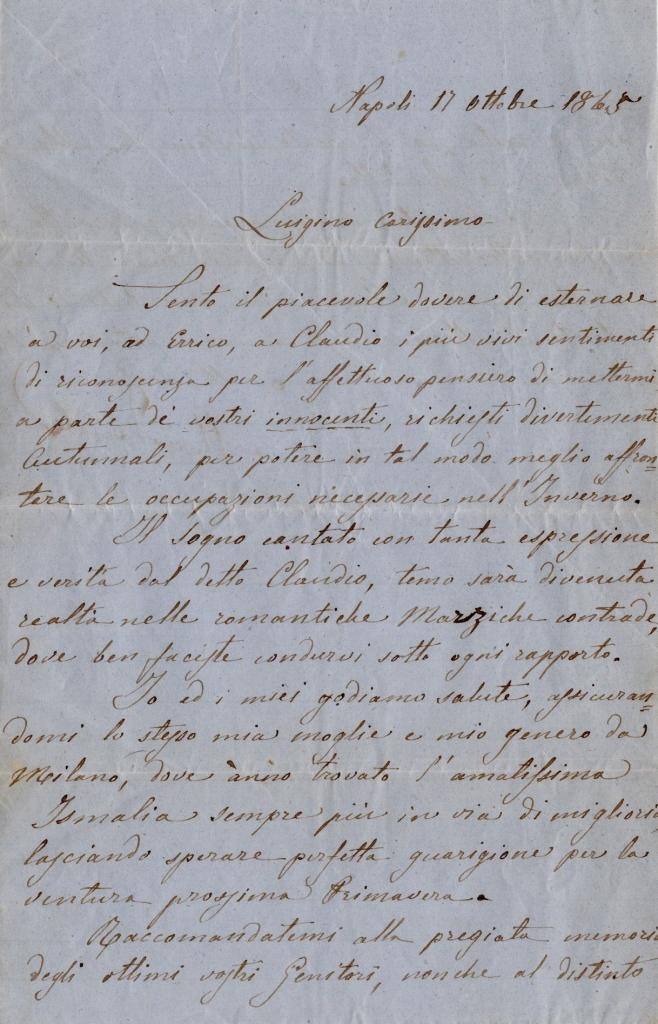 Napoli 17 Ottobre 1865
Luigino Carissimo
Sento il piacevole dovere di esternare
a voi, ad Errico, a Claudio i più vivi sentimenti
di riconoscenza per l'affettuoso pensiero di mettermi
a parte de' vostri innocenti, richiesti divertimenti
Autunnali, per potere in tal modo meglio affron=
tare le occupazioni necessarie nell'Inverno.
Il sogno cantato con tanta espressione
e verità dal detto Claudio, temo sarà divenuta
realtà nelle romantiche Marziche contrade,
dove ben faceste condurvi sotto ogni rapporto.
Io ed i miei godiamo salute, assicuran=
domi lo stesso mia moglie e mio genero da
Milano, dove ànno trovato l'amatissima
Ismalia sempre più in via di migliori
lasciando sperare perfetta guarigione per la
ventura prossima Primavera.
Raccomandatemi alla pregiata memori
degli ottimi vostri Genitori, nonche al distinto